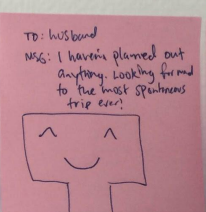 TO: husband
MSG: I haven't planned out
anything. Looking forward
to the most spontaneous
trip ever!